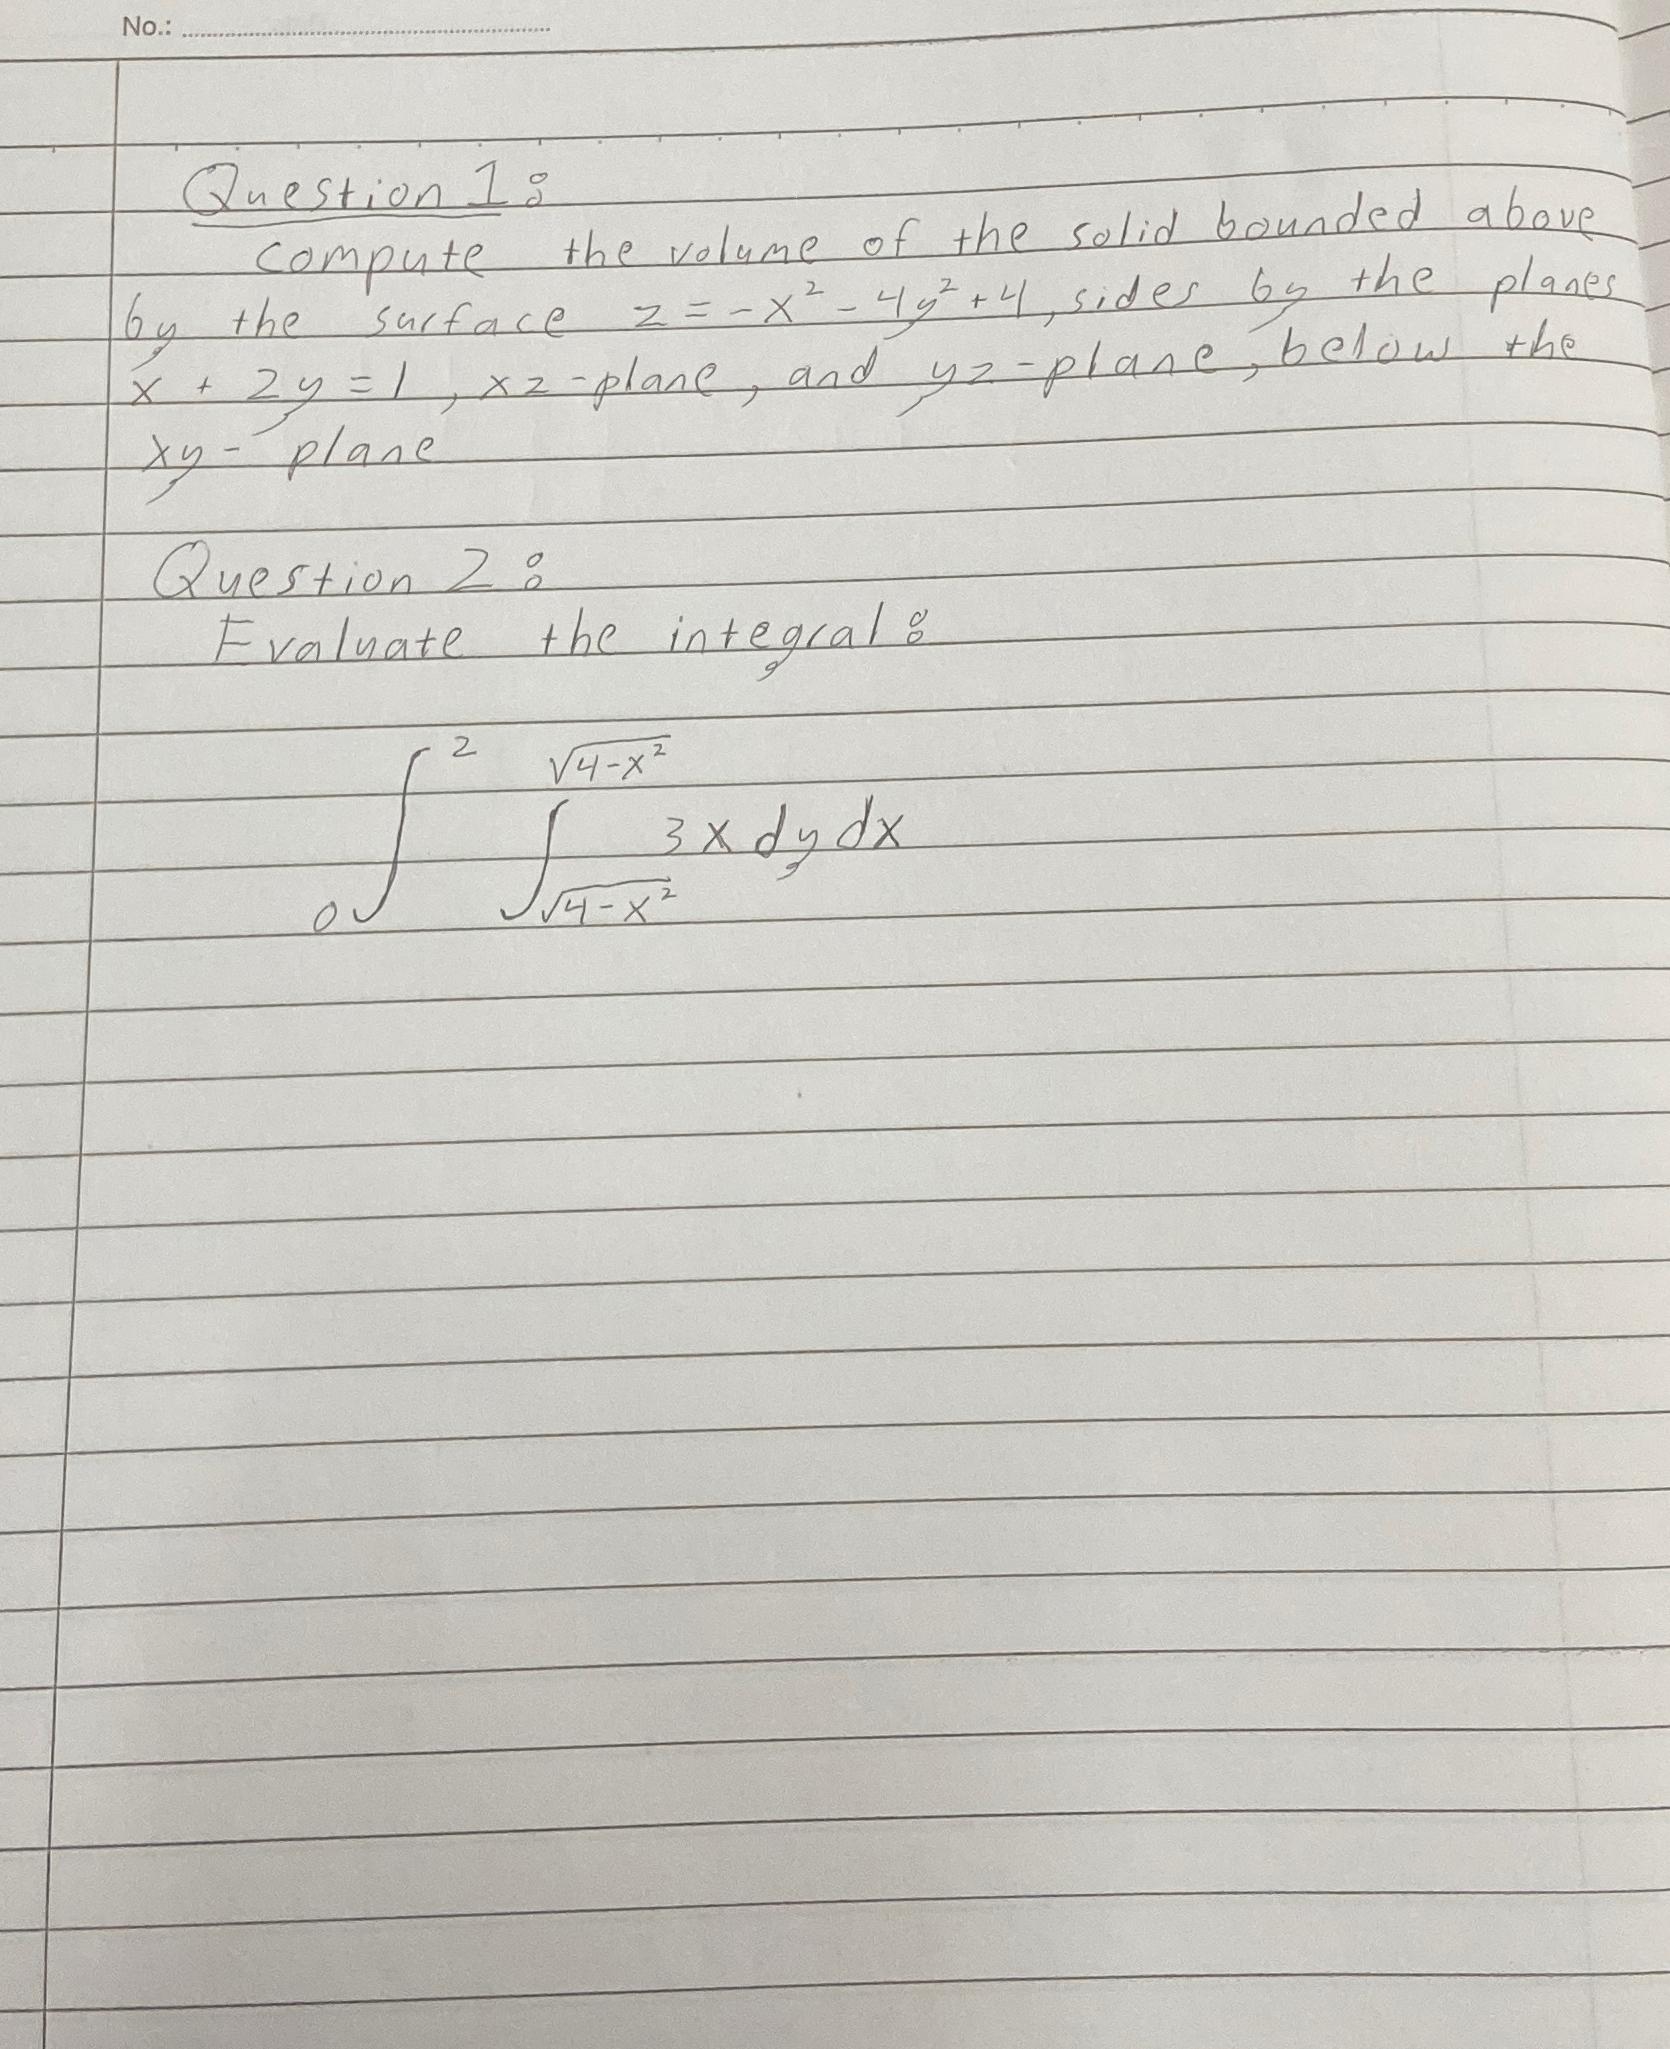 No.:
Question 1:
compute the volume of the solid bounded above
by the surface z = -x² - 4y² + 4, sides by the planes
x + 2y = 1, xz-plane, and yz-plane, below the
xy- plane
Question 2:
Evaluate the integral:
∫₀² ∫_{√(4-x²)}^{√(4-x²)} 3x dy dx